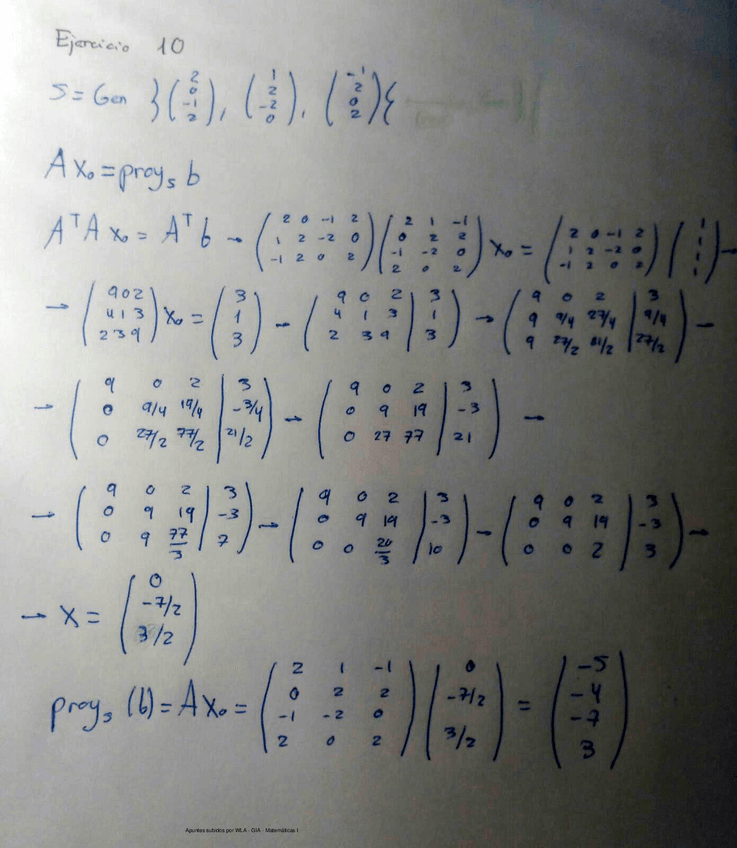 Ejercicio 10
S = Gen }(2 0 -1 2), (1 2 -2 0), (-1 2 0 2){
A x₀ = proyₛ b
AᵀA x₀ = Aᵀb → (2 0 -1 2 / 1 2 -2 0 / -1 2 0 2) (2 1 -1 / 0 2 2 / -1 -2 0 / 2 0 2) x₀ = (2 0 -1 2 / 1 2 -2 0 / -1 2 0 2) (1 / 1 / 1 / 1) →
→ (9 0 2 / 4 1 3 / 2 3 9) x₀ = (3 / 1 / 3) → (9 0 2 | 3 / 4 1 3 | 1 / 2 3 9 | 3) → (9 0 2 | 3 / 9 9/4 27/4 | 9/4 / 9 27/2 81/2 | 27/2) →
→ (9 0 2 | 3 / 0 9/4 19/4 | -3/4 / 0 27/2 77/2 | 21/2) → (9 0 2 | 3 / 0 9 19 | -3 / 0 27 77 | 21) →
→ (9 0 2 | 3 / 0 9 19 | -3 / 0 9 77/3 | 7) → (9 0 2 | 3 / 0 9 19 | -3 / 0 0 20/3 | 10) → (9 0 2 | 3 / 0 9 19 | -3 / 0 0 2 | 3) →
→ X = (0 / -7/2 / 3/2)
proyₛ (b) = A x₀ = (2 1 -1 / 0 2 2 / -1 -2 0 / 2 0 2) (0 / -7/2 / 3/2) = (-5 / -4 / -7 / 3)
Apuntes subidos por WLA - GIA - Matemáticas I